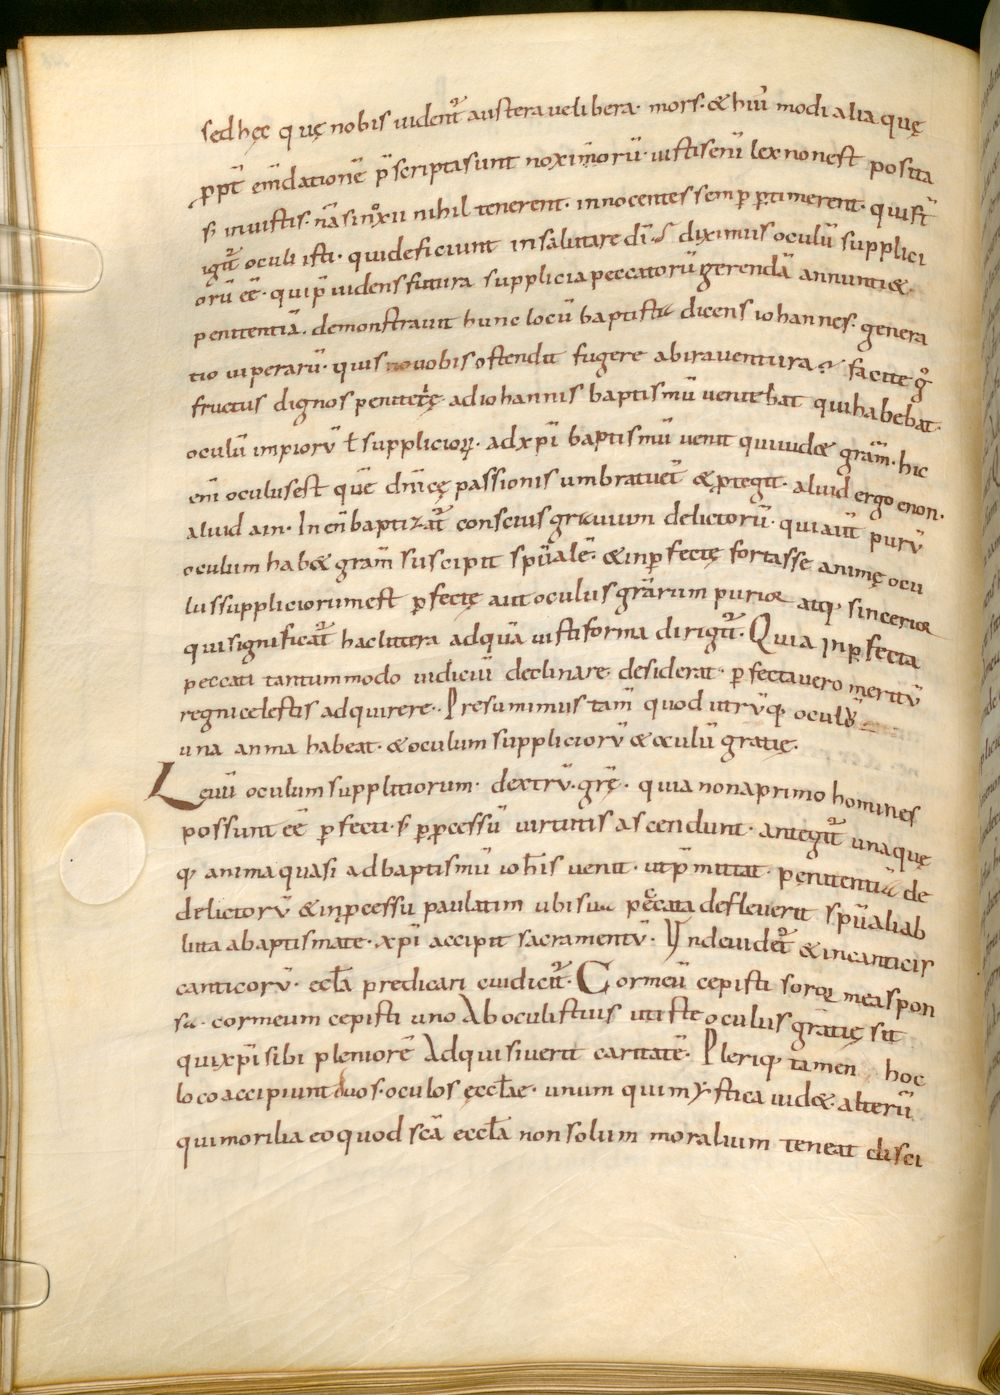 sedhęc quę nobis uident᷑ austera ueľ libera· mors· & hiū modi alia quę
ꝓpt̄ em̄datione p̄scripta sunt noximorū· iustis enī lex non est posita
s; iniustis· nā si noxii nihil tenerent· innocentes semꝑ ꝑtimerent· qui st̄
igit᷑ oculi isti· qui deficiunt in salutare dī· S; diximus oculū supplici
orū eē· qui p̄uidens futura supplicia peccatorū gerendā annunti&·
penitentiā· demonstrauit hunc locū baptista dicens iohannes· genera
tio uiperarū· quis uobis ostendit fugere ab ira uentura? facite gͦ
fructus dignos penitentię· ad iohannis baptismū ueniebat qui habebat·
oculū impiorū ł supplicioꝝ· ad xp̄i baptismū uenit qui uid& grām· hic
enī oculus est quē dn̄icę passionis umbra tuet᷑ & ꝓtegit· aliud ergo enon·
aliud ain· In enō baptizat᷑ conscius grauium delictorū· qui aūt purū
oculum hab& grām suscipit spū̄alē· & inꝑfectę fortasse animę ocu
lus suppliciorum est ꝑfectę aut oculus grārum purior atq; sincerior
qui significat᷑ hac littera ad quā iusti forma dirigit᷑· Quia inꝑfecta
peccati tantummodo iudiciū declinare· desiderat· ꝑfecta uero meritū
regni celestis adquirere· Presumimus tam̄ quod utrūq; oculū
una anima habeat· & oculum suppliciorū & oculū gratię·
Leuū oculum supplitiorum· dextrū· grę̄· quia non a primo homines
possunt eē ꝑfecti· s; ꝑ ꝓcessū uirtutis ascendunt· ante igit᷑ una quę
q; anima quasi ad baptismū ioh̄is uenit· ut p̄mittat· penitentia de
delictorū & in ꝓcessu paulatim ubi sua peccata defleuerit spū̄alia b
luta a baptismate· xp̄i accipit sacramentū· Unde uidet᷑ & in canticis
canticorū· eccła predicari cui dicit᷑· Cor meū cepisti soror mea spon
sa· cor meum cepisti uno Ab oculis tuis uti iste oculus gratię sit
qui xp̄i sibi pleniorē Adquisiuerit caritatē· Pleriq; tamen hoc
loco accipiunt duos· oculos ęccłae· unum qui mystica uid&· alterū
qui moralia eo quod scā eccła non solum moralium teneat disci